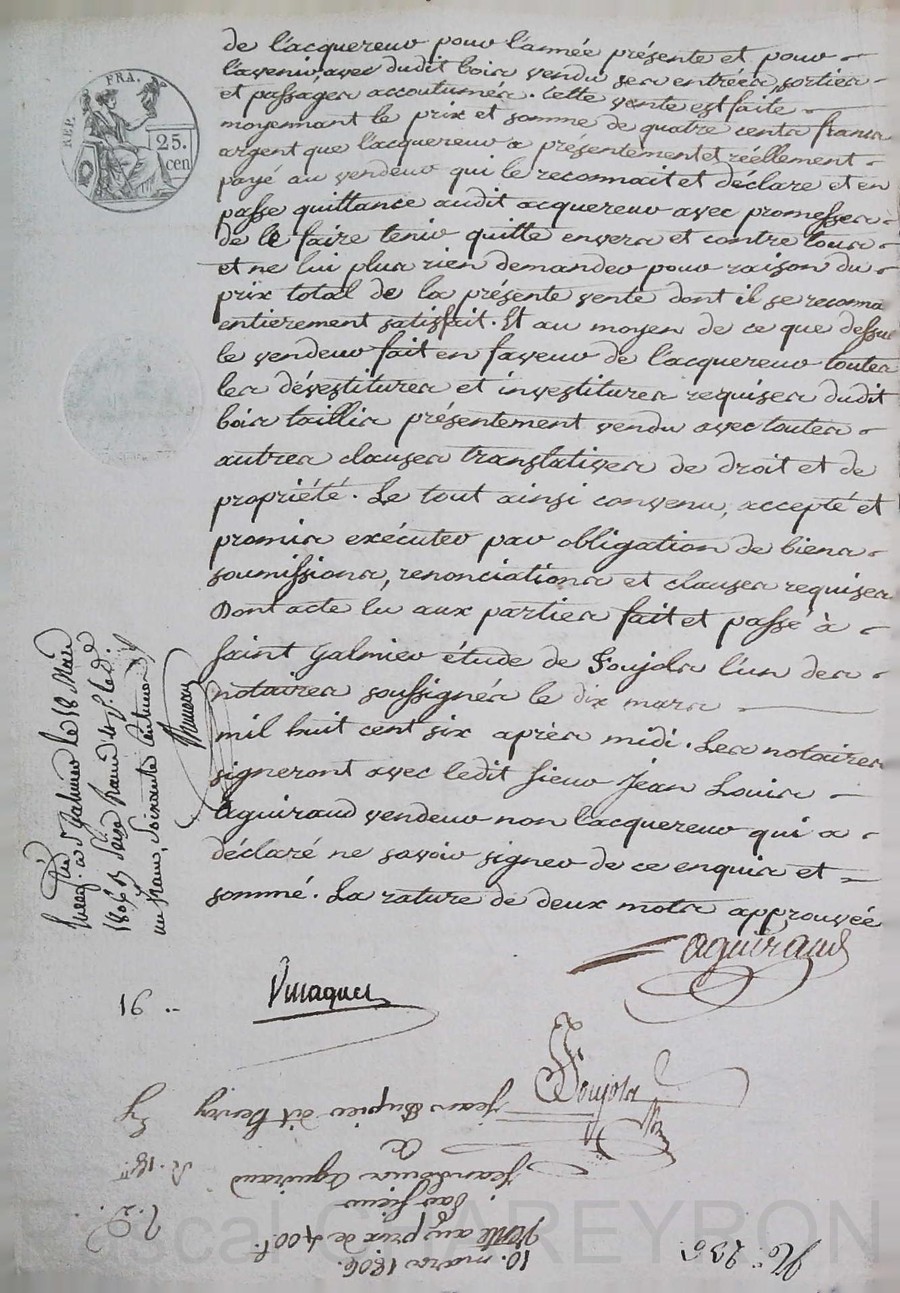 de l'acquereur pour l'année présente et pour
l'avenir, avec dudit bois vendu ses entrées, sorties
et passages accoutumés. Cette vente est faite
moyennant le prix et somme de quatre cents francs
argent que l'acquereur a présentement et réellement
payé au vendeur qui le reconnait et déclare et en
passe quittance audit acquereur avec promesses
de le faire tenir quitte envers et contre tous
et ne lui plus rien demander pour raison du
prix total de la présente vente dont il se reconna
entierement satisfait. Et au moyen de ce que dessus
le vendeur fait en faveur de l'acquereur toutes
les dévestitures et investitures requises dudit
bois taillis présentement vendu avec toutes
autres clauses translatives de droit et de
propriété. Le tout ainsi convenu, accepté et
promis exécuter par obligation de biens
soumissions, renonciations et clauses requises
Dont acte lu aux parties fait et passé à
Saint Galmier étude de Soujols l'un des
notaires soussignés le dix mars
mil huit cent six après midi. Les notaires
signeront avec ledit Sieur Jean Louis
Aguiraud vendeur non l'acquereur qui a
déclaré ne savoir signer de ce enquis et
sommé. La rature de deux mots approuvée
REP. FRA.
25.
cen
Enreg. à St Galmier le 18 Mars
1806
un franc, soixante centimes
Aguiraud
16
Soujols
Jean Dupier dit Henry
Jean Louis Aguiraud
Sieur
Vente au prix de 400 f.
10. mars 1806.
No. 236
Pascal CHAREYRON